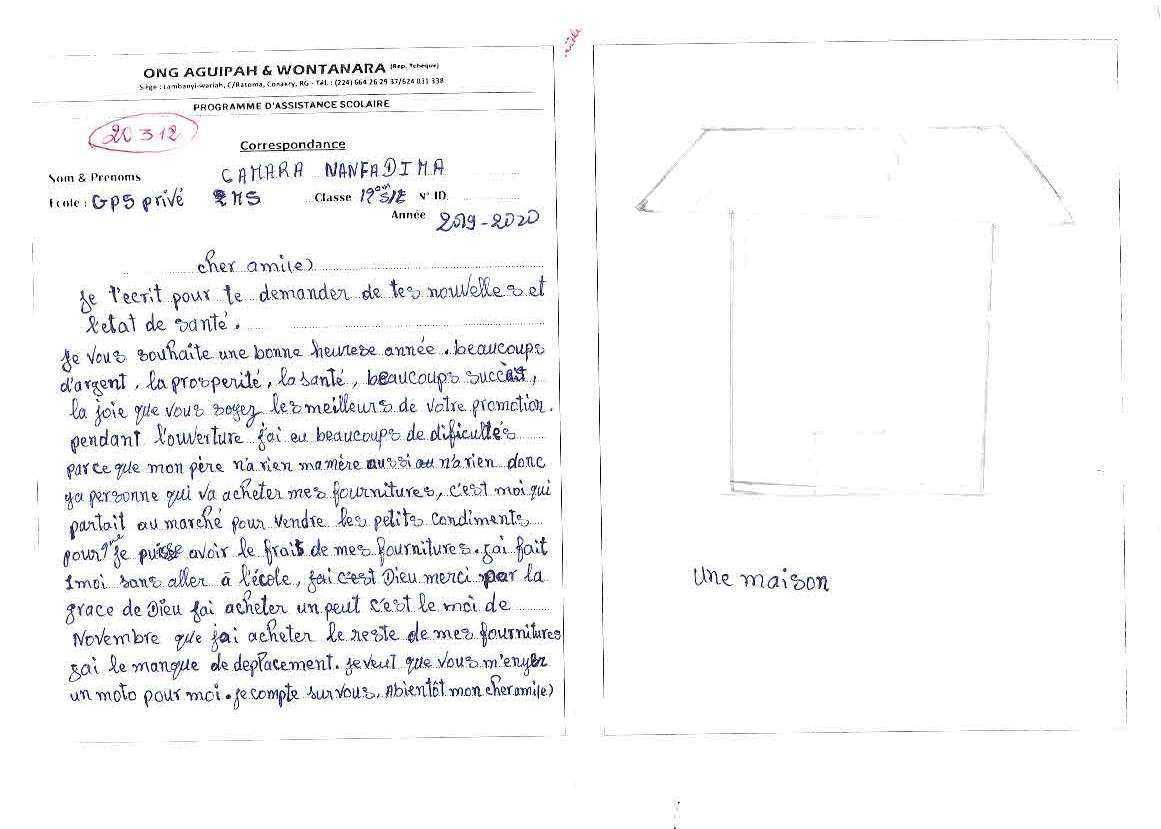 ONG AGUIPAH & WONTANARA (Rep. Tchèque)
Siège : Lambanyi-wariah, C/Ratoma, Conakry, RG - Tél. : (224) 664 26 29 37/624 031 338
PROGRAMME D'ASSISTANCE SCOLAIRE
20312
Correspondance
Nom & Prenoms CAMARA NANFADIMA
Ecole : GPS privé 2MS Classe N° ID
Année 2019-2020
cher ami(e)
je t'ecrit pour te demander de tes nouvelles et
l'etat de santé.
je vous souhaite une bonne heurese année. beaucoups
d'argent, la prosperité, la santé, beaucoups
la joie que vous soyez les meilleurs de votre promotion.
pendant l'ouverture j'ai eu beaucoups de dificultés
parce que mon père n'a rien ma mère aussi n'a rien donc
ya personne qui va acheter mes fournitures, c'est moi qui
partait au marché pour vendre les petits condiments
pour que je puisse avoir le frais de mes fournitures. j'ai fait
1moi sans aller à l'école, j'ai c'est Dieu merci par la
grace de Dieu j'ai acheter un peut c'est le moi de
Novembre que j'ai acheter le reste de mes fournitures
j'ai le manque de deplacement. je veut que vous
un moto pour moi. je compte sur vous. Abientôt mon cher ami(e)
une maison